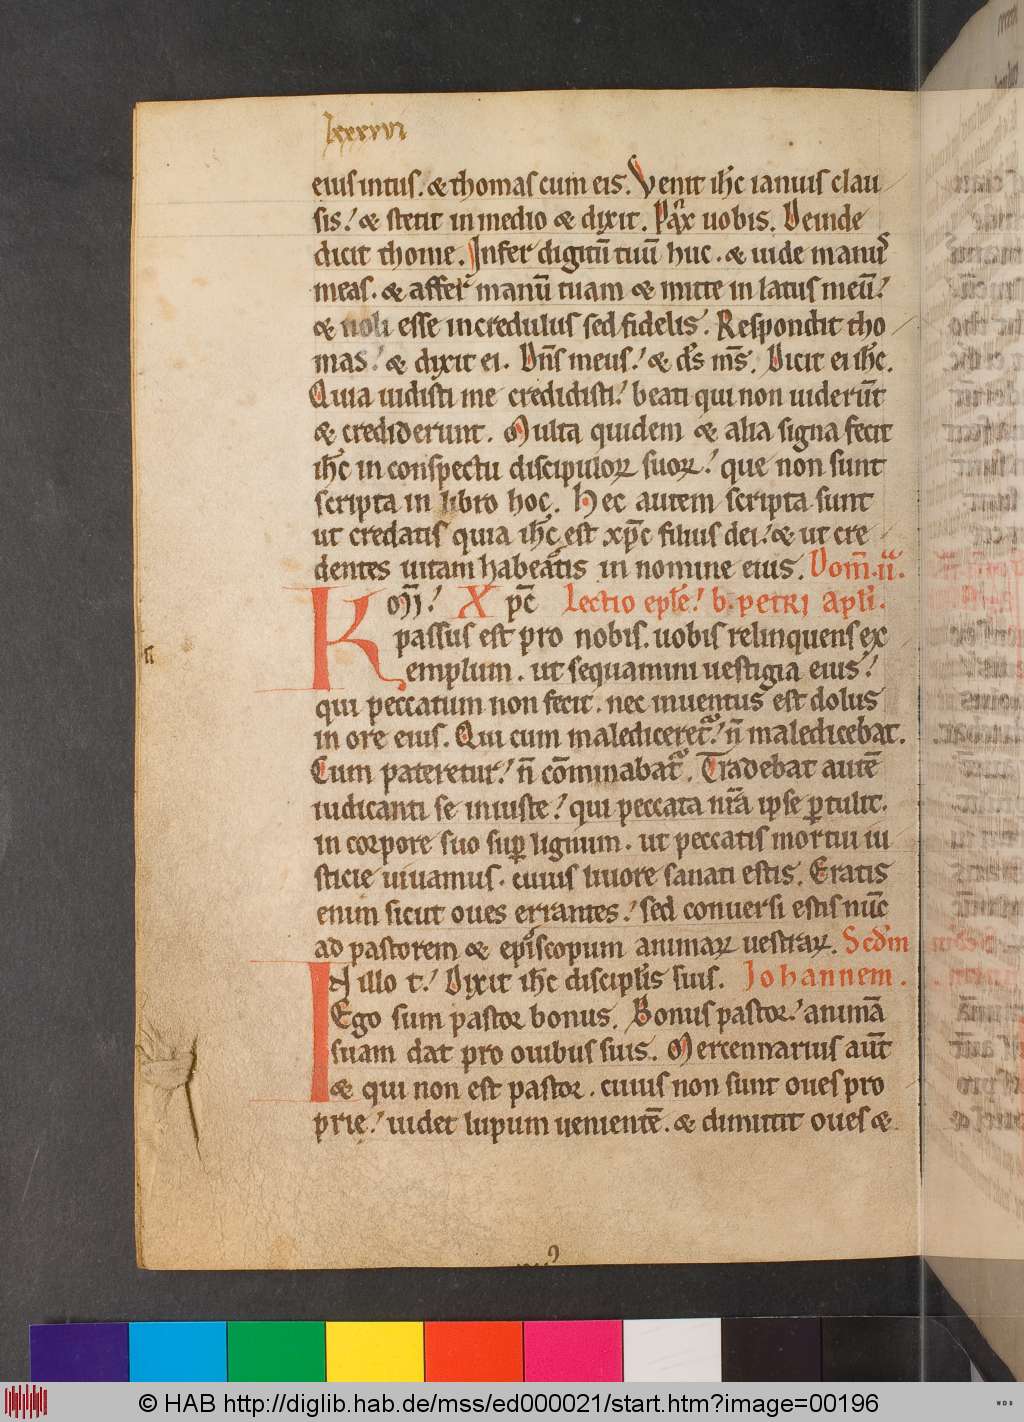 lxxxxvi
eius intus. & thomas cum eis. Venit ih̄c ianuis clau
sis! & stetit in medio & dixit. Pax uobis. Deinde
dicit thome. Infer digitū tuū huc. & uide manus
meas. & affer manū tuam & mitte in latus meū!
& noli esse incredulus sed fidelis. Respondit tho
mas! & dixit ei. Dn̄s meus! & d̄s m̄s. Dicit ei ih̄c.
Quia uidisti me credidisti! beati qui non uiderūt
& crediderunt. Multa quidem & alia signa fecit
ih̄c in conspectu discipuloꝝ suoꝝ! que non sunt
scripta in libro hoc. Hec autem scripta sunt
ut credatis quia ih̄c est xp̄c filius dei! & ut cre
dentes uitam habeatis in nomine eius. Dom̄. ii.ᵃ
Km̄! Xp̄c Lectio epl̄e! b. petri apl̄i.
passus est pro nobis. uobis relinquens ex
emplum. ut sequamini uestigia eius!
qui peccatum non fecit. nec inuentus est dolus
in ore eius. Qui cum malediceret᷑! n̄ maledicebat.
Cum pateretur! n̄ cōminabat᷑. Tradebat autē
iudicanti se iniuste! qui peccata nr̄a ipse ꝑtulit.
in corpore suo suꝑ lignum. ut peccatis mortui iu
sticie uiuamus. cuius liuore sanati estis. Eratis
enim sicut oues errantes! sed conuersi estis nūc
ad pastorem & episcopum animaꝝ uestraꝝ. Scd̄m
In illo t! Dixit ih̄c discipl̄is suis. Johannem.
Ego sum pastor bonus. Bonus pastor! animā
suam dat pro ouibus suis. Mercennarius aūt
& qui non est pastor. cuius non sunt oues pro
prie! uidet lupum uenientē. & dimittit oues &
© HAB http://diglib.hab.de/mss/ed000021/start.htm?image=00196